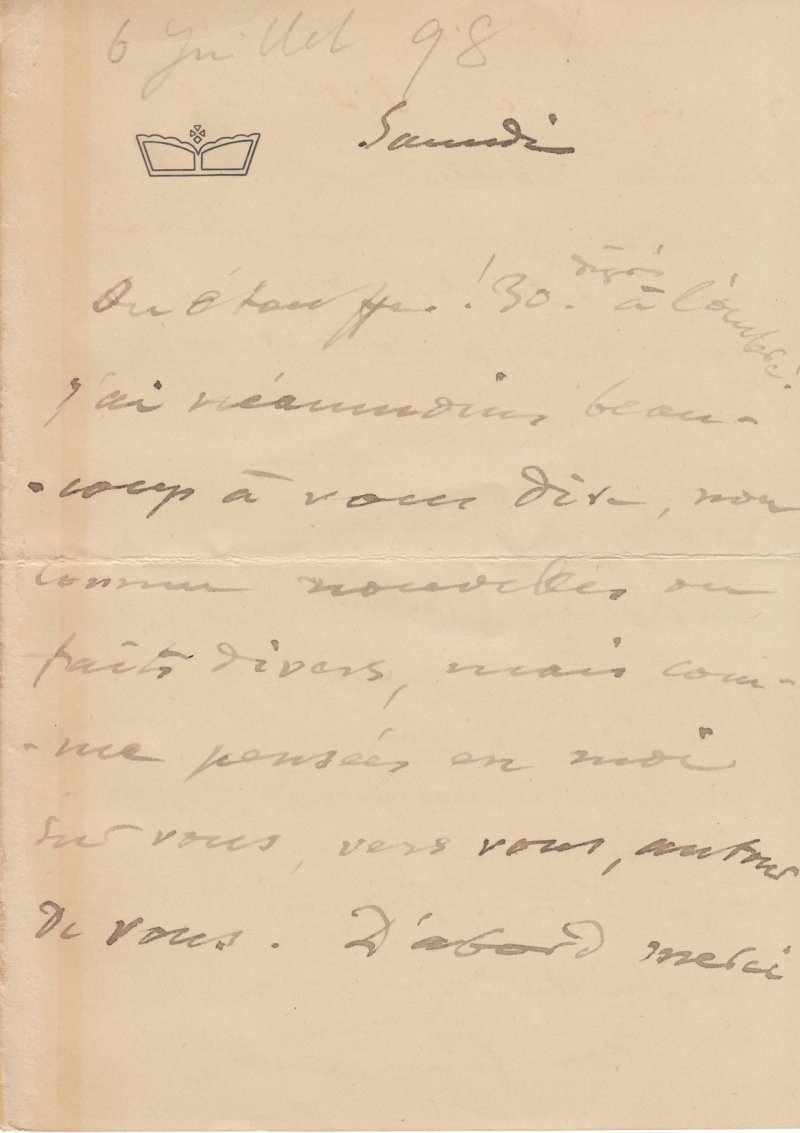 6 Juillet 98
Samedi
On étouffe. ! 30. degrés à l'ombre !
J'ai néanmoins beau-
-coup à vous dire, non
comme nouvelles ou
faits divers, mais com-
-me pensées en moi
sur vous, vers vous, autour
de vous. D'abord merci